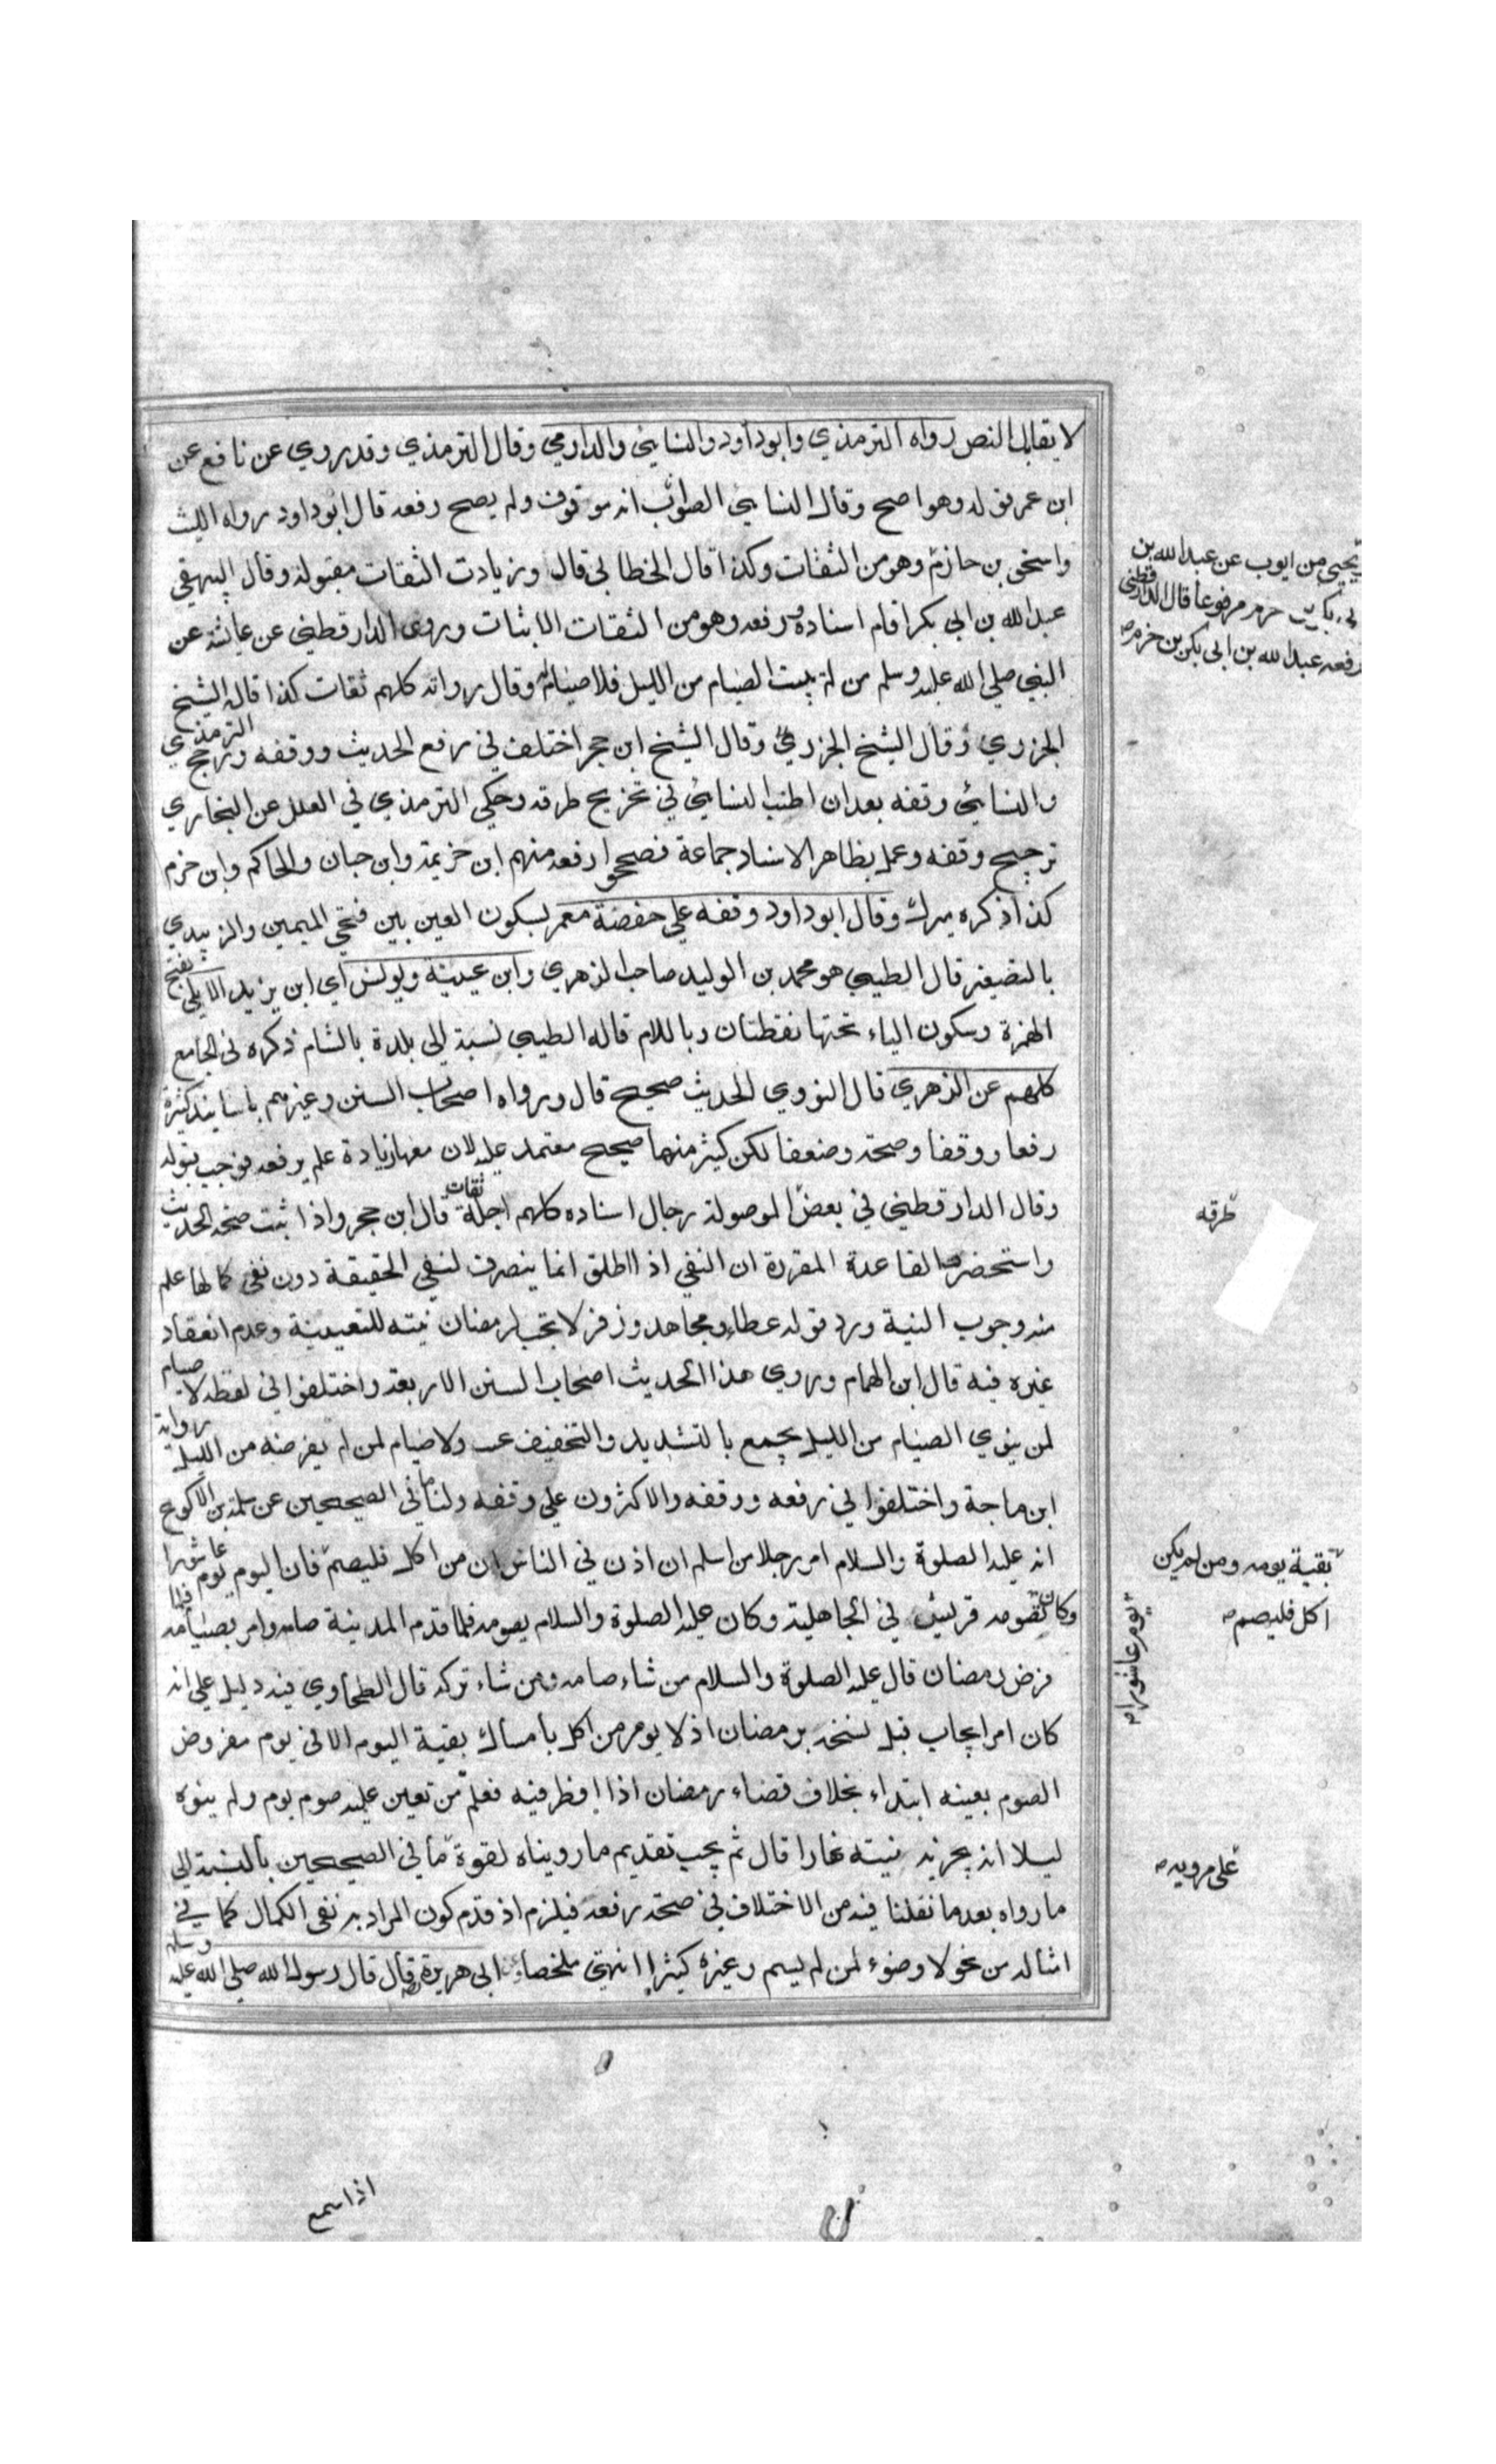 لا يقابل النص رواه الترمذي وابوداود والنسائي والدارمي وقال الترمذي وقد روي عن نافع عن
ابن عمر قوله وهو اصح وقال النسائي الصواب انه موقوف ولم يصح رفعه قال ابوداود رواه الليث
واسحق بن حازم وهو من الثقات وكذا قال الخطابي قال وزيادت الثقات مقبولة وقال البيهقي
عبد الله بن ابي بكر اقام اسناده ورفعه وهو من الثقات الاثبات وروى الدارقطني عن عائشة عن
النبي صلى الله عليه وسلم من لم يبيت الصيام من الليل فلا صيام له وقال رواته كلهم ثقات كذا قاله الشيخ
الجزري وقال الشيخ الجزري وقال الشيخ ابن حجر اختلف في رفع الحديث ووقفه ورجح الترمذي
والنسائي وقفه بعد ان اطنب النسائي في تخريج طرقه وحكي الترمذي في العلل عن البخاري
ترجيح وقفه وعمل بظاهر الاسناد جماعة فصححوا رفعه منهم ابن خزيمة وابن حبان والحاكم وابن حزم
كذا ذكره ميرك وقال ابو داود وقفه علي حفصة معمر بسكون العين بين فتحي الميمين والزبيدي
بالتصغير قال الطيبي هو محمد بن الوليد صاحب الزهري وابن عيينة ويونس اي ابن يزيد الايلي بفتح
الهمزة وسكون الياء تحتها نقطتان وباللام قاله الطيبي نسبة الي بلدة بالشام ذكره في الجامع
كلهم عن الزهري قال النووي الحديث صحيح قال ورواه اصحاب السنن وغيرهم باسانيد كثيرة
رفعا ووقفا وصحة وضعفا لكن كثير منها صحيح معتمد عليه لان معها زيادة علم برفعه فوجب قبوله
وقال الدارقطني في بعض الموصولة رجال اسناده كلهم اجلة ثقات قال ابن حجر واذا ثبت صحة الحديث
واستحضرت القاعدة المقررة ان النفي اذا اطلق انما ينصرف لنفي الحقيقة دون نفي كمالها علم
منه وجوب النية ورد قوله عطاء ومجاهد وزفر لا تجب لرمضان نيته للتعيينة وعدم انعقاد
غيره فيه قال ابن الهمام وروي هذا الحديث اصحاب السنن الاربعة واختلفوا في لفظه لا صيام
لمن ينوي الصيام من الليل يجمع بالتشديد والتخفيف ولا صيام لمن لم يفرضه من الليل رواية
ابن ماجة واختلفوا في رفعه ووقفه والاكثرون علي وقفه ولنا ما في الصحيحين عن سلمة بن الاكوع
انه عليه الصلوة والسلام امر رجلا من اسلم ان اذن في الناس ان من اكل فليصم فان اليوم يوم عاشورا
وكان تصومه قريش في الجاهلية وكان عليه الصلوة والسلام يصومه فلما قدم المدينة صامه وامر بصيامه فلما
فرض رمضان قال عليه الصلوة والسلام من شاء صامه ومن شاء تركه قال الطحاوي فيه دليل علي انه
كان امر ايجاب قبل نسخه برمضان اذ لا يومر من اكل بأمساك بقية اليوم الا في يوم مفروض
الصوم بعينه ابتداء بخلاف قضاء رمضان اذا افطر فيه فعلم من تعين عليه صوم يوم ولم ينوه
ليلا انه يجزيه نيته نهارا قال ثم يجب تقديم ما رويناه لقوة ما في الصحيحين بالنسبة الي
ما رواه بعدما نقلنا فيه من الاختلاف في صحة رفعه فيلزم اذ قدم كون المراد به نفي الكمال كما في
امثاله من نحو لا وضوء لمن لم يسم وغيره كثيرا انتهى ملخصا وعن ابي هريرة قال قال رسول الله صلى الله عليه وسلم
يحيى بن ايوب عن عبد الله بن
ابي بكر بن حزم مرفوعا قال الدارقطني
رفعه عبد الله بن ابي بكر بن حزم
طرقه
بقية يومه ومن لم يكن
اكل فليصم
يوم عاشورا
على مرويه
اذا سمع